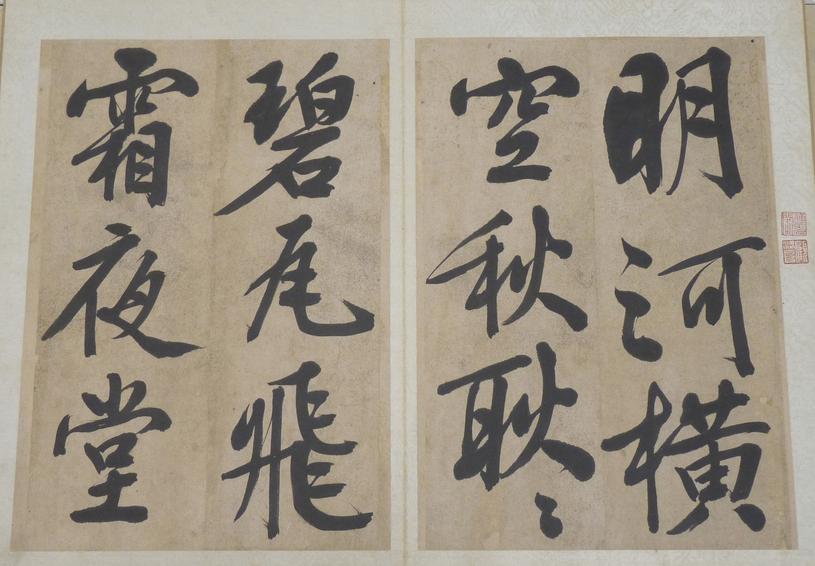 明河橫
空秋耿〻
碧尾飛
霜夜堂